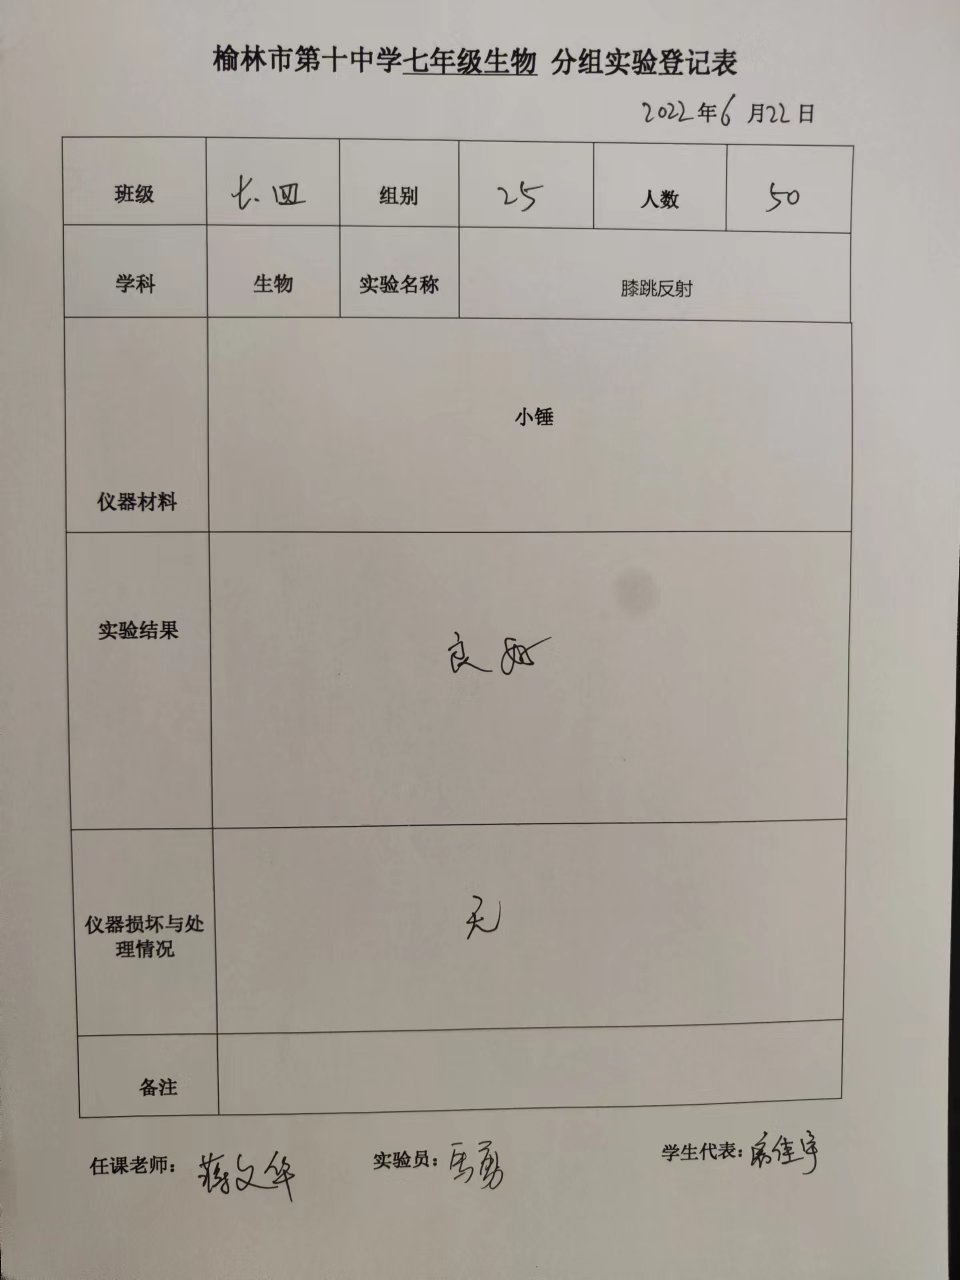 榆林市第十中学七年级生物 分组实验登记表
2022年6月22日
班级 七.四 组别 25 人数 50
学科 生物 实验名称 膝跳反射
小锤
仪器材料
实验结果
良好
仪器损坏与处
理情况
无
备注
任课老师：蒋文华 实验员：马勇 学生代表：佳宇